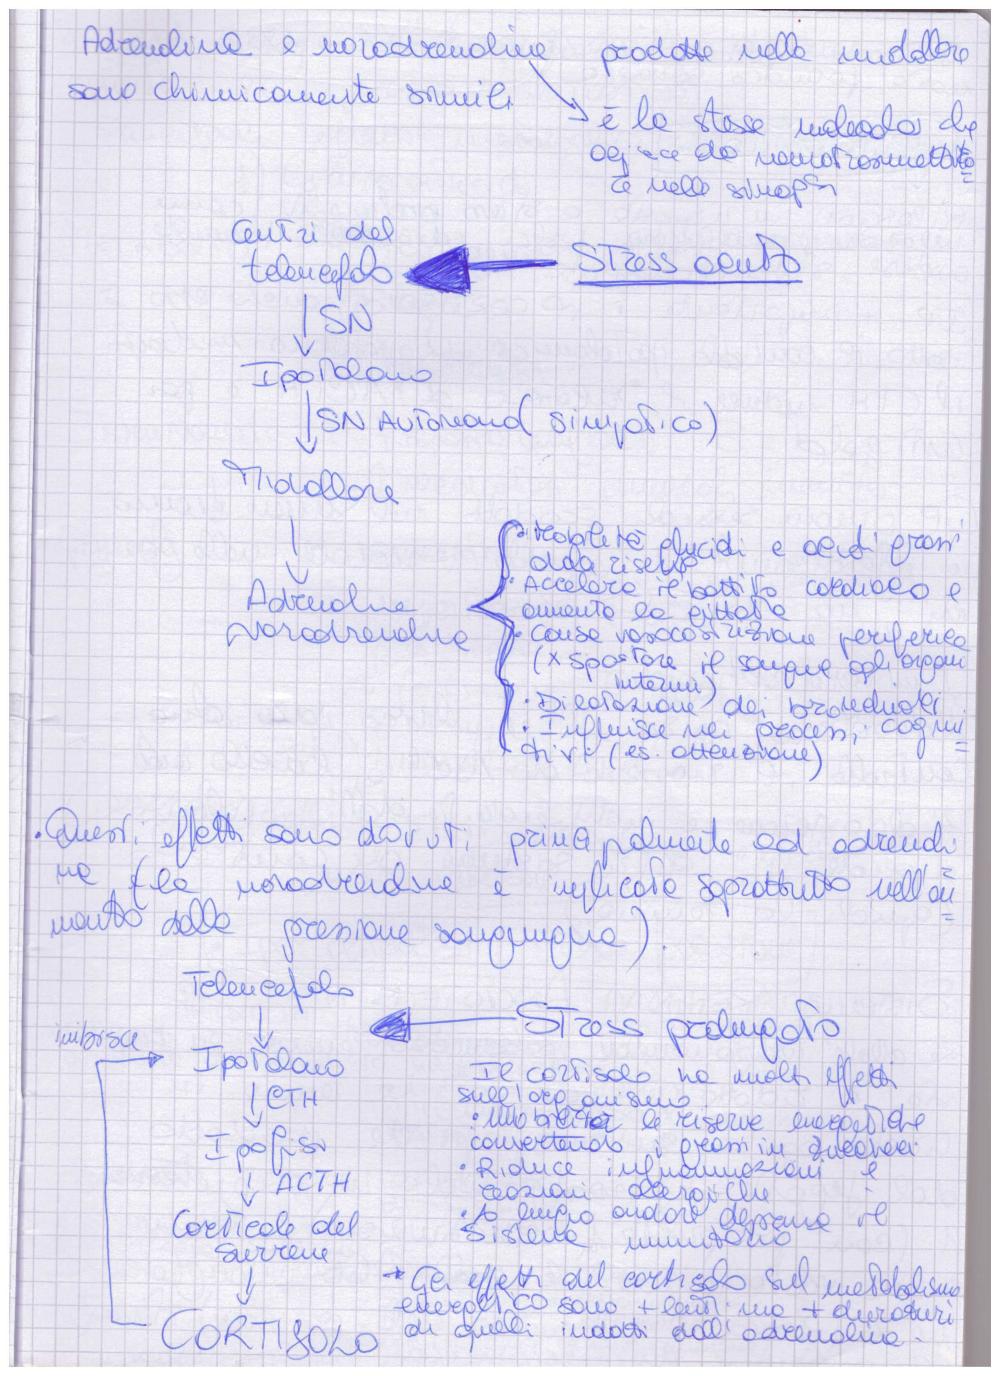 Adrenalina e noradrenalina prodotte nella midollare
sono chimicamente simili
è la stessa molecola che
agisce da neurotrasmettito
re nelle sinapsi
Centri del
telencefalo
Stress acuto
SN
Ipotalamo
SN Autonomo (simpatico)
Midollare
Adrenalina
Noradrenalina
• Mobilita glucidi e acidi grassi
dalle riserve
• Accelera il battito cardiaco e
aumenta la gittata
• Causa vasocostrizione periferica
(x spostare il sangue agli organi
interni)
• Dilatazione dei bronchioli
• Influisce nei processi cogni
tivi (es. attenzione)
• Questi effetti sono dovuti principalmente ad adrenali
na (la noradrenalina è implicata soprattutto nell'au
mento della pressione sanguigna).
Telencefalo
Stress prolungato
inibisce
Ipotalamo
CTH
Ipofisi
ACTH
Corticale del
surrene
CORTISOLO
Il cortisolo ha molti effetti
sull'organismo
• mobilita le riserve energetiche
convertendo i grassi in zuccheri
• Riduce infiammazioni e
reazioni allergiche
• A lungo andare deprime il
sistema immunitario
* Gli effetti del cortisolo sul metabolismo
energetico sono + lenti ma + duraturi
di quelli indotti dall'adrenalina.